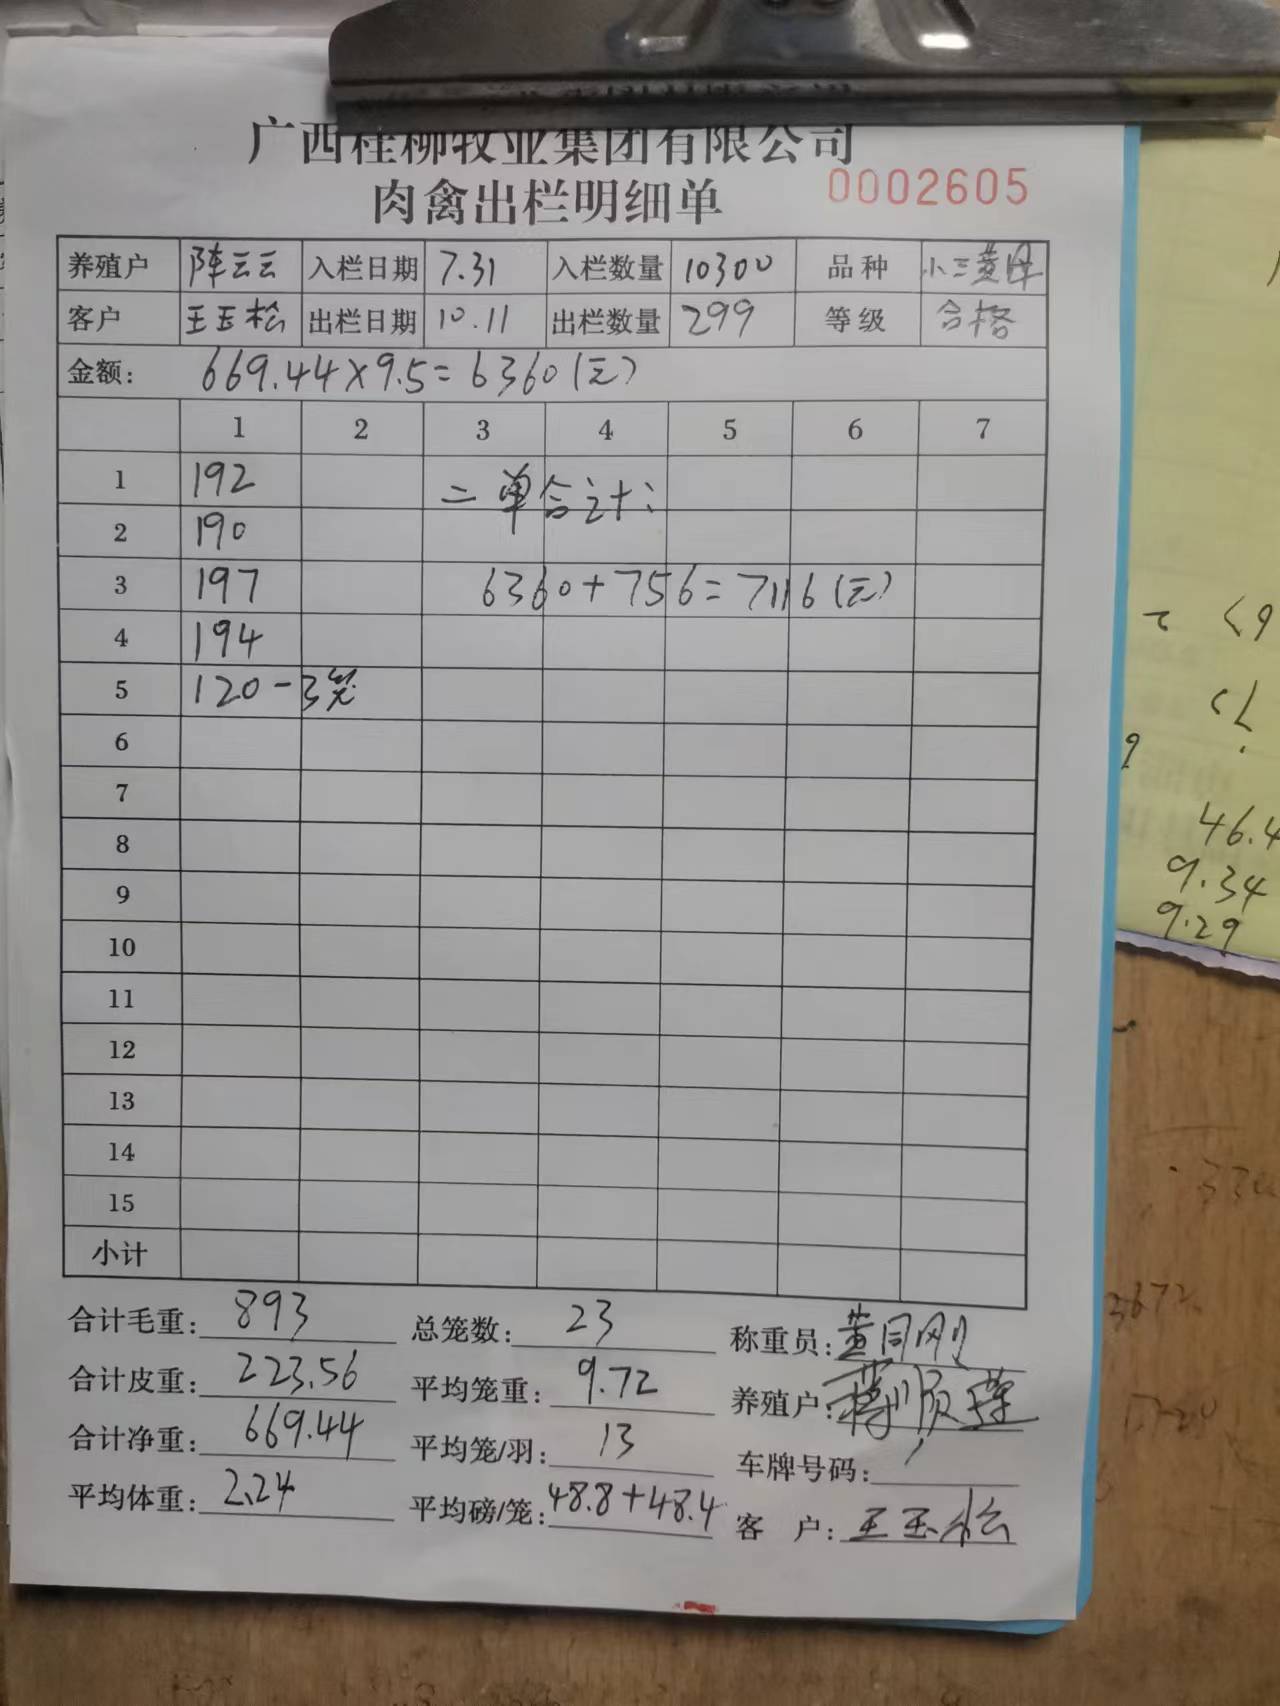 广西桂柳牧业集团有限公司
肉禽出栏明细单 0002605
养殖户 陈云云 入栏日期 7.31 入栏数量 10300 品种 小三黄
客户 王玉松 出栏日期 10.11 出栏数量 299 等级 合格
金额: 669.44×9.5=6360(元)
1 2 3 4 5 6 7
1 192 二单合计:
2 190
3 197 6360+756=7116(元)
4 194
5 120-3笼
6
7
8
9
10
11
12
13
14
15
小计
合计毛重: 893 总笼数: 23 称重员: 黄同刚
合计皮重: 223.56 平均笼重: 9.72 养殖户:
合计净重: 669.44 平均笼/羽: 13 车牌号码:
平均体重: 2.24 平均磅/笼: 48.8+48.4 客户: 王玉松
46.4
9.34
9.29